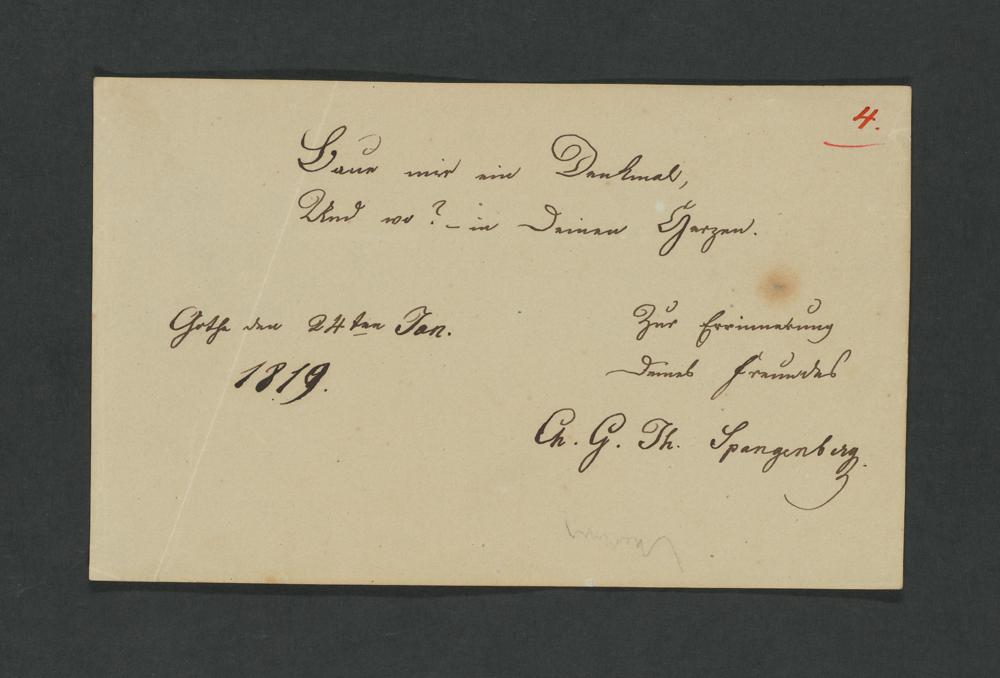 4.
Baue mir ein Denkmal,
Und wo? – in Deinen Herzen.
Gotha den 24ten Jan.
1819.
Zur Errinnerung
Deines Freundes
Ch. G. Th. Spangenberg.